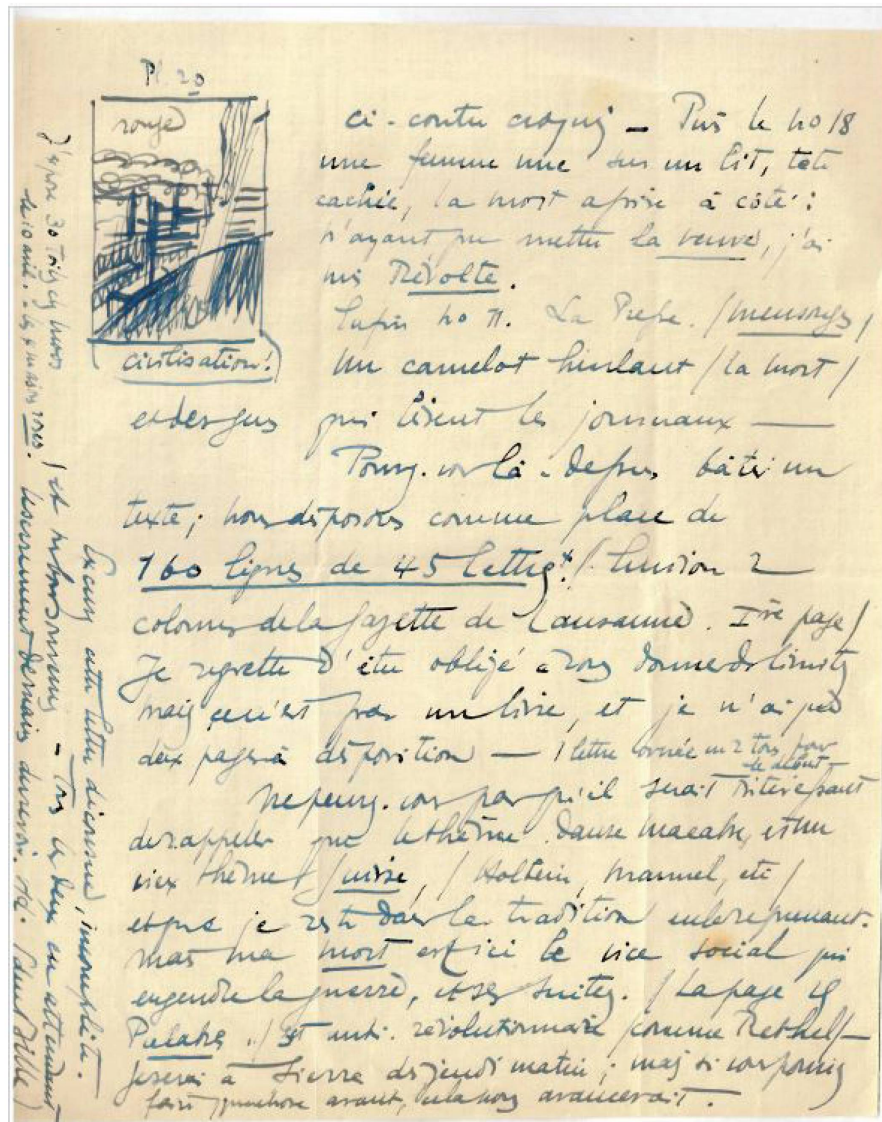 Pl. 20
rouge
civilisation!
ci-contre croquis — Puis le no 18
une femme nue sur un lit, tête
cachée, la mort assise à côté :
n'ayant pu mettre la veuve, j'ai
mis Révolte.
Enfin no 11. La Presse. / mensonges /
un camelot hurlant / la mort /
et des gens qui lisent les journaux —
Pouvez-vous là-dessus bâtir un
texte ; nous disposons comme place de
160 lignes de 45 lettres. / 2
colonnes de la gazette de Lausanne. Ière page /
Je regrette d'être obligé à vous donner des limites
mais ce n'est pas un livre, et je n'ai que
deux pages à disposition — 1 lettre ornée en 2 tons pour
le début —
Ne pensez-vous pas qu'il serait intéressant
de rappeler que le thème danse macabre, est un
vieux thème suisse, / Holbein, Manuel, etc /
et que je reste dans la tradition en le reprenant.
Mais ma mort est ici le vice social qui
engendre la guerre, et ses suites. / La page 19
est anti-révolutionnaire comme Rethel / —
Je serai à Sierre dès jeudi matin ; mais si vous pouviez
faire quelque chose avant, cela nous avancerait.
Excusez cette lettre décousue, incomplète.
— Tous les deux en attendant
J'expose 30 toiles